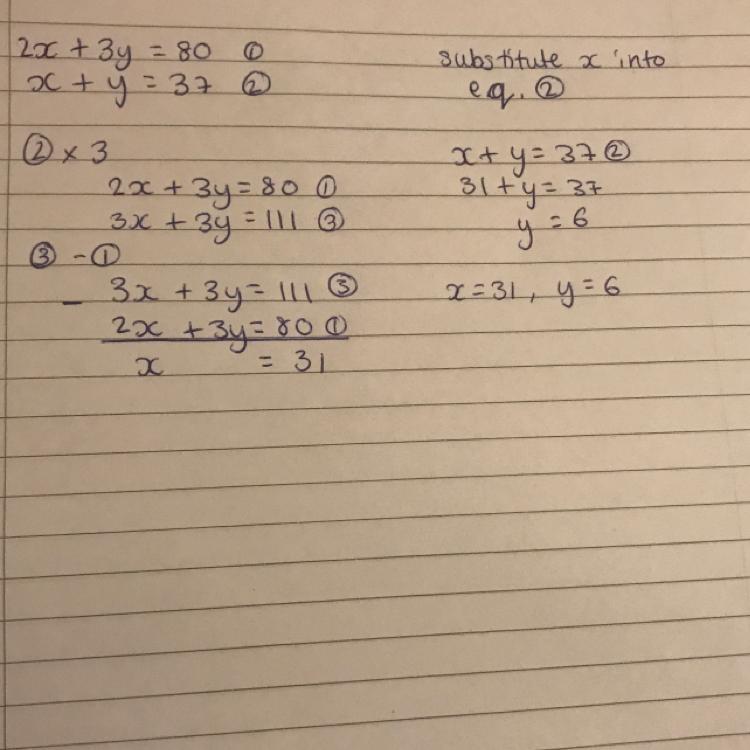 2x + 3y = 80 ①
x + y = 37 ②
② × 3
2x + 3y = 80 ①
3x + 3y = 111 ③
③ - ①
- 3x + 3y = 111 ③
2x + 3y = 80 ①
x = 31
substitute x into
eq. ②
x + y = 37 ②
31 + y = 37
y = 6
x = 31, y = 6